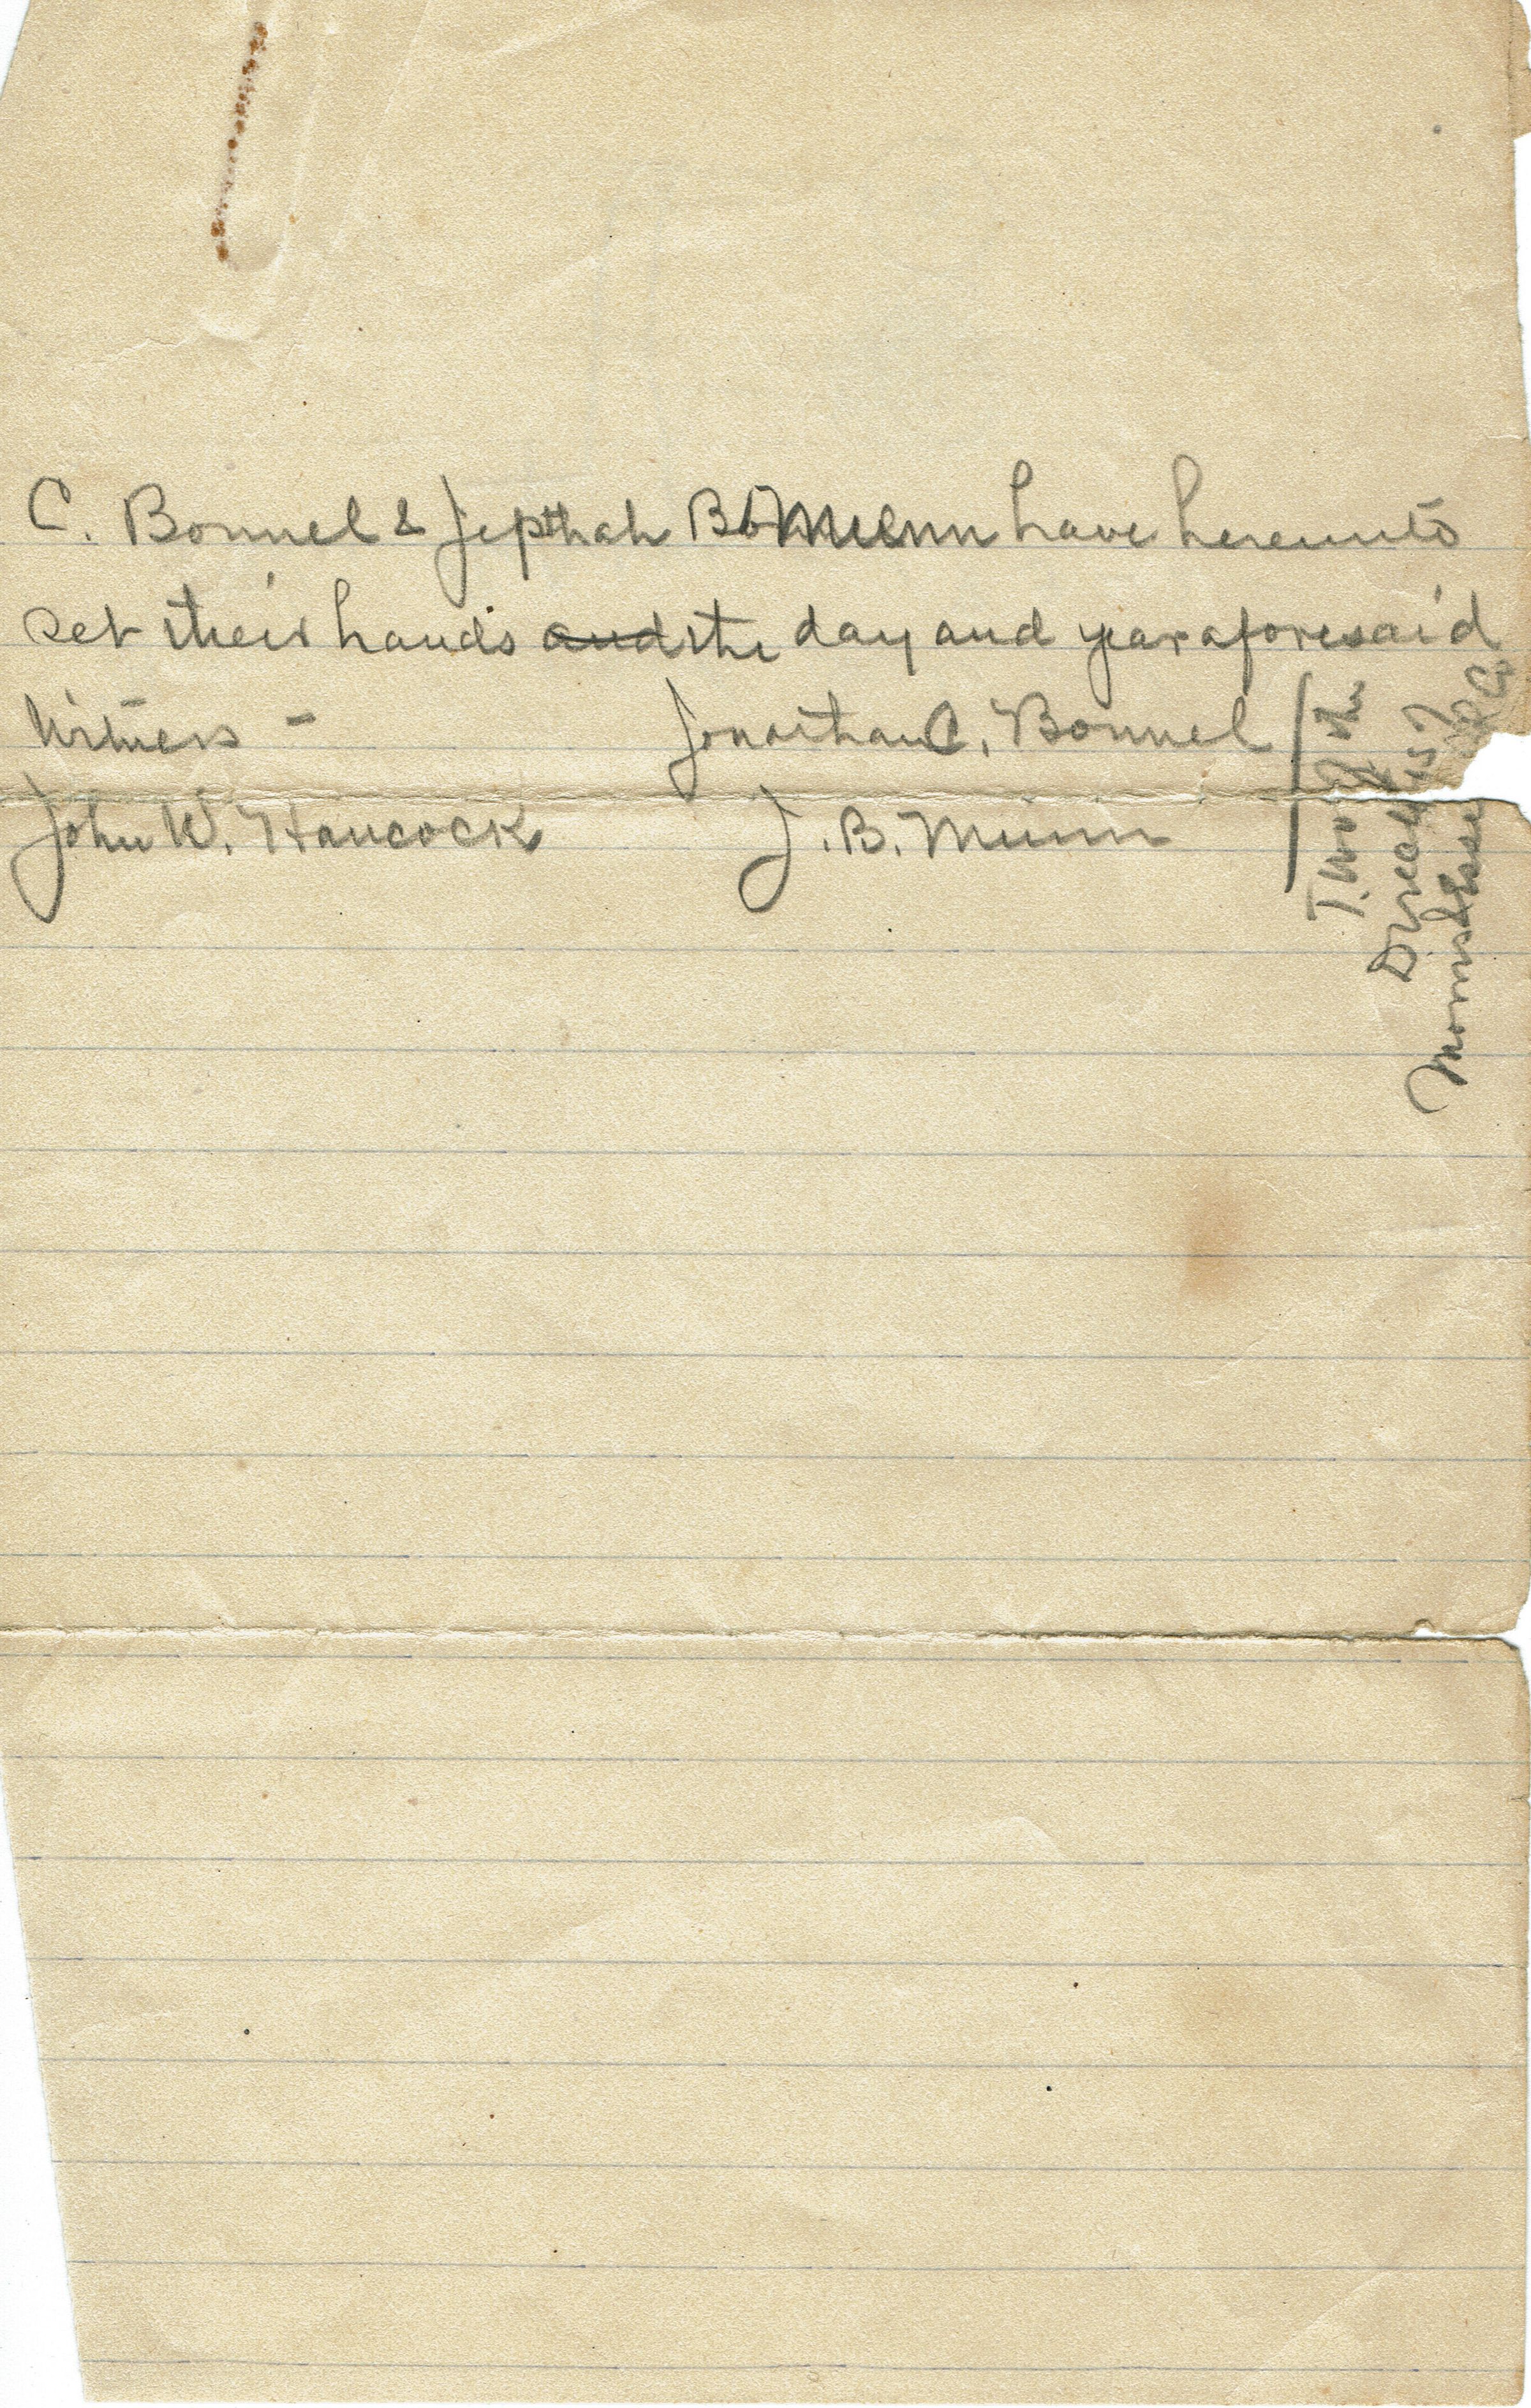 C. Bonnel & Jepthah B. Munn have hereunto
set their hands and the day and year aforesaid
Witness - Jonathan C. Bonnel
John W. Hancock J. B. Munn
Two of the
Directors
Morris & Essex